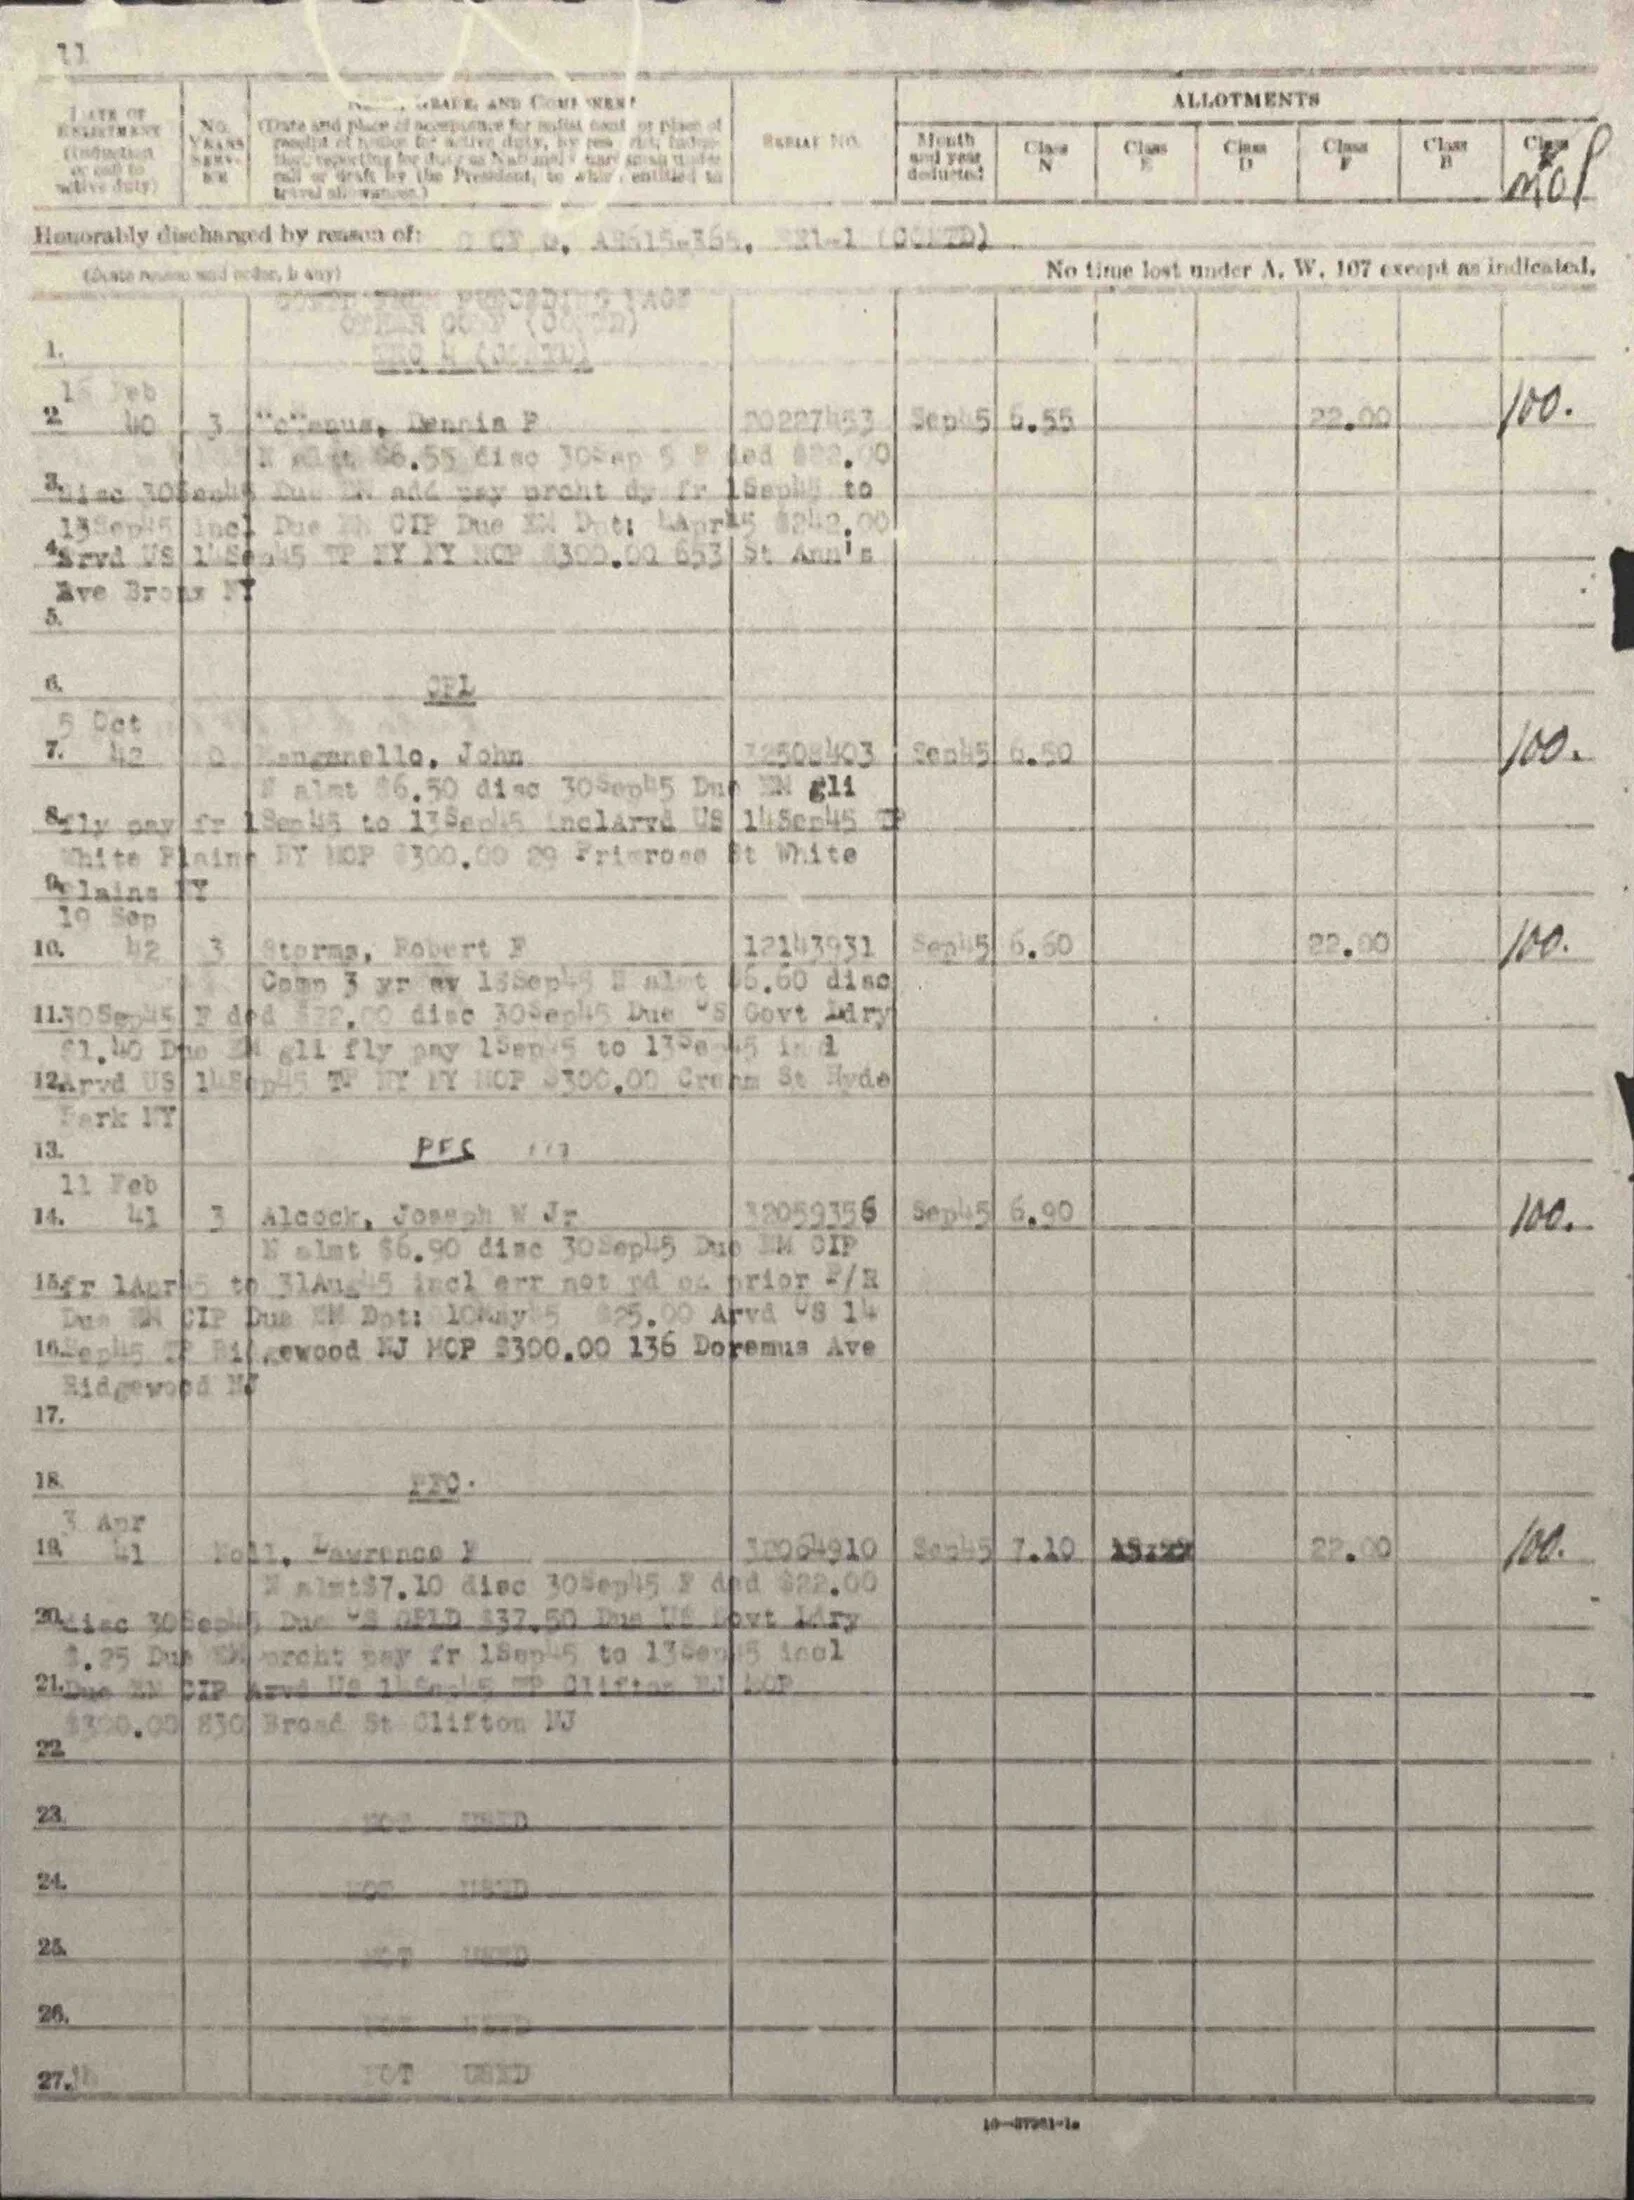 11
DATE OF ENLISTMENT (Induction or call to active duty)
NO. YEARS SERVICE
NAME, GRADE, AND COMPONENT
(Date and place of acceptance for enlistment or place of receipt of notice for active duty, by
call or draft by the President, to which entitled to travel allowances.)
SERIAL NO.
ALLOTMENTS
Month and year deducted
Class N
Class E
Class D
Class F
Class B
Class
MOP
Honorably discharged by reason of: C OF G, AR615-365, RR1-1 (CONTD)
No time lost under A. W. 107 except as indicated.
PRECEDING PAGE
OTHER CONP (CONTD)
1. (CONTD)
16 Feb
2. 40 3 Dennis P 20227453 Sep45 6.55 22.00 100.
N almt $6.55 disc 30Sep 5 F ded $22.00
3. disc 30Sep45 Due EM add pay prcht dy fr 1Sep45 to
13Sep45 incl Due EM CIP Due EM Dpt: 4Apr45 $242.00
4. Arvd US 14Sep45 TP NY NY MOP $300.00 653 St Ann's
Ave Bronx NY
5.
6. CPL
5 Oct
7. 42 0 Manganello, John 32508403 Sep45 6.50 100.
N almt $6.50 disc 30Sep45 Due EM gli
8. fly pay fr 1Sep45 to 13Sep45 inclArvd US 14Sep45 TP
White Plains NY MOP $300.00 29 Primrose St White
9. Plains NY
19 Sep
10. 42 3 Storms, Robert F 12143931 Sep45 6.60 22.00 100.
Comp 3 yr sv 18Sep45 N almt $6.60 disc
11. 30Sep45 F ded $22.00 disc 30Sep45 Due US Govt Ldry
$1.40 Due EM gli fly pay 1Sep45 to 13Sep45 incl
12. Arvd US 14Sep45 TP NY NY MOP $300.00 St Hyde
Park NY
13. PFC
11 Feb
14. 41 3 Alcock, Joseph W Jr 32059356 Sep45 6.90 100.
N almt $6.90 disc 30Sep45 Due EM CIP
15. fr 1Apr45 to 31Aug45 incl err not pd on prior P/R
Due EM CIP Due EM Dpt: 10May45 $25.00 Arvd US 14
16. Sep45 TP Ridgewood NJ MOP $300.00 136 Doremus Ave
Ridgewood NJ
17.
18. PFC
3 Apr
19. 41 Lawrence F 32064910 Sep45 7.10 22.00 100.
N almt$7.10 disc 30Sep45 F ded $22.00
20. disc 30Sep45 Due US GPLD $37.50 Due US Govt Ldry
$.25 Due EM prcht pay fr 1Sep45 to 13Sep45 incl
21. Due EM CIP Arvd US 14Sep45 TP Clifton NJ MOP
$300.00 830 Broad St Clifton NJ
22.
23. NOT USED
24. NOT USED
25. NOT USED
26. NOT USED
27. NOT USED